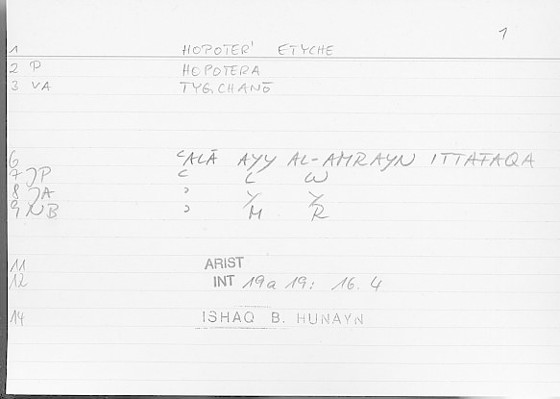 1
1 HOPOTER' ETYCHE
2 P HOPOTERA
3 VA TYGCHANŌ
6 ʿALĀ AYY AL-AMRAYN ITTAFAQA
7 JP ʿ L W
8 JA ʾ Y Y
9 NB ʾ M R
11 ARIST
12 INT 19a 19: 16.4
14 ISHAQ B. HUNAYN